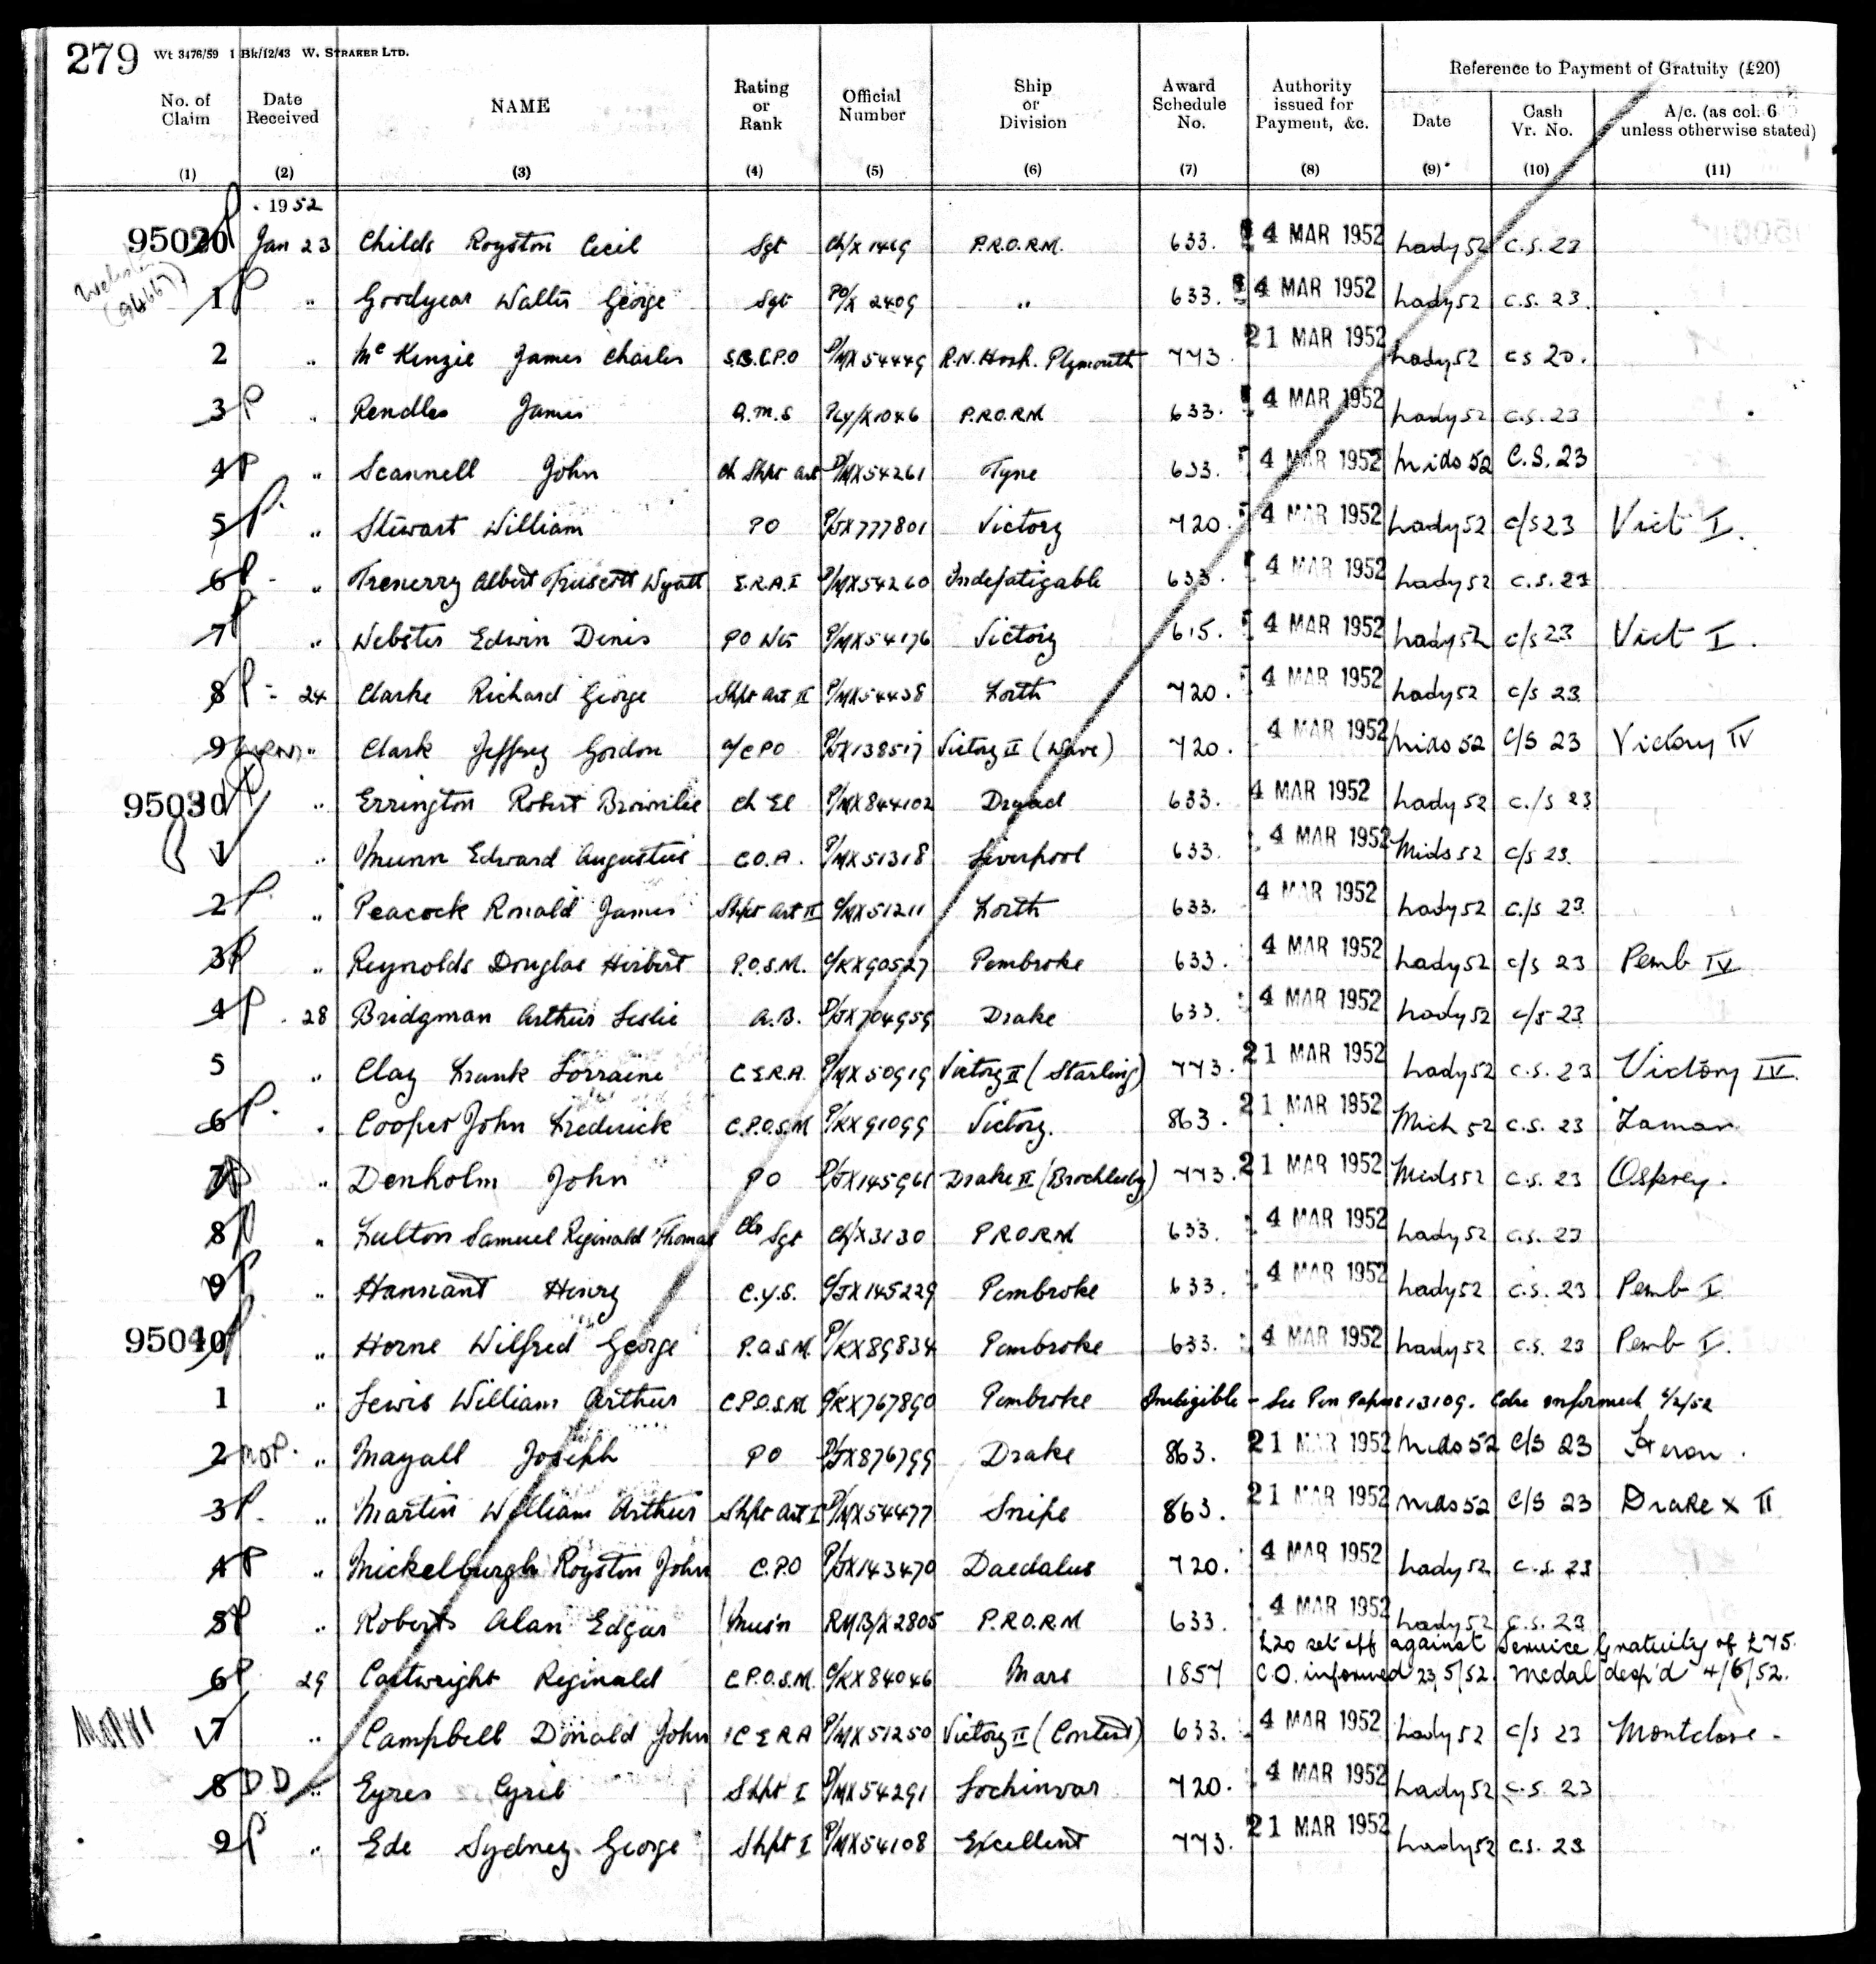 279 Wt 3476/59 1 Bk/12/43 W. STRAKER LTD.
Reference to Payment of Gratuity (£20)
No. of Claim Date Received NAME Rating or Rank Official Number Ship or Division Award Schedule No. Authority issued for Payment, &c. Date Cash Vr. No. A/c. (as col. 6 unless otherwise stated)
(1) (2) (3) (4) (5) (6) (7) (8) (9) (10) (11)
1952
95020 Jan 23 Childs Royston Cecil Sgt Ch/X 1469 P.R.O.R.M. 633. 4 MAR 1952 Lady 52 C.S. 23
1 " Goodyear Walter George Sgt PO/X 2409 " 633. 4 MAR 1952 Lady 52 C.S. 23.
2 " McKenzie James Charles S.B.C.P.O D/MX 54449 R.N. Hosp. Plymouth 773. 21 MAR 1952 Lady 52 CS 20.
3 P " Rendles James Q.M.S PLY/X1046 P.R.O.RM 633. 4 MAR 1952 Lady 52 C.S. 23
4 P " Scannell John Ch Shpt Art D/MX54261 Tyne 633. 4 MAR 1952 Mids 52 C.S. 23
5 P. " Stewart William PO P/JX777801 Victory 720. 4 MAR 1952 Lady 52 C/S 23 Vict I.
6 P " Trenerry Albert Truscott Wyatt E.R.A.I D/MX54260 Indefatigable 633. 4 MAR 1952 Lady 52 C.S. 23
7 P " Webster Edwin Denis PO Wtr P/MX54176 Victory 615. 4 MAR 1952 Lady 52 C/S 23 Vict I.
8 P 24 Clarke Richard George Shpt Art II P/MX54438 Forth 720. 4 MAR 1952 Lady 52 C/S 23
9 " Clark Jeffrey Gordon A/CPO P/JX138517 Victory II (Wave) 720. 4 MAR 1952 Mids 52 C/S 23 Victory IV
95030 " Errington Robert Brownlie Ch El P/MX844102 Dryad 633. 4 MAR 1952 Lady 52 C./S 23
1 " Munn Edward Augustus C.O.A. P/MX51318 Liverpool 633. 4 MAR 1952 Mids 52 C/S 23.
2 P. " Peacock Ronald James Shpt Art II C/MX51211 Forth 633. 4 MAR 1952 Lady 52 C./S 23.
3 P " Reynolds Douglas Herbert P.O.S.M. C/KX90527 Pembroke 633. 4 MAR 1952 Lady 52 C/S 23 Pemb IV
4 P 28 Bridgman Arthur Leslie A.B. D/JX704959 Drake 633. 4 MAR 1952 Lady 52 C/S 23
5 " Clay Frank Lorraine C.E.R.A. P/MX50919 Victory II (Starling) 773. 21 MAR 1952 Lady 52 C.S. 23 Victory IV.
6 P. " Cooper John Frederick C.P.O.S.M P/KX91099 Victory. 863. 21 MAR 1952 Mich 52 C.S. 23
7 " Denholm John PO D/JX145961 Drake II (Brocklesby) 773. 21 MAR 1952 Mids 52 C.S. 23 Osprey.
8 P " Fulton Samuel Reginald Thomas Clr Sgt Ch/X3130 P.R.O.R.M 633. 4 MAR 1952 Lady 52 C.S. 23
9 P " Hannant Henry C.Y.S. C/JX145229 Pembroke 633. 4 MAR 1952 Lady 52 C.S. 23 Pemb I
95040 " Horne Wilfred George P.O.S.M. P/KX89834 Pembroke 633. 4 MAR 1952 Lady 52 C.S. 23 Pemb I.
1 " Lewis William Arthur C.P.O.S.M C/KX767890 Pembroke Ineligible - See Pen Papers 13109. Cdre informed 4/2/52
2 " Mayall Joseph PO D/JX876799 Drake 863. 21 MAR 1952 Mids 52 C/S 23 Heron.
3 P. " Martin William Arthur Shpt Art I D/MX54477 Snipe 863. 21 MAR 1952 Mids 52 C/S 23 Drake X II
4 P " Mickelburgh Royston John C.P.O P/JX143470 Daedalus 720. 4 MAR 1952 Lady 52 C.S. 23
5 P " Roberts Alan Edgar Mus'n RMB/X2805 P.R.O.R.M 633. 4 MAR 1952 Lady 52 C.S. 23
£20 set off against Service Gratuity of £75.
6 P 29 Cartwright Reginald C.P.O.S.M. C/KX84046 Mars 1857 C.O. informed 23/5/52. Medal desp'd 4/6/52.
7 " Campbell Donald John C E R A P/MX51250 Victory II (Contest) 633. 4 MAR 1952 Lady 52 C/S 23 Montclare -
8 DD " Eyres Cyril Shpt I P/MX54291 Lochinvar 720. 4 MAR 1952 Lady 52 C.S. 23
9 P " Ede Sydney George Shpt I P/MX54108 Excellent 773. 21 MAR 1952 Lady 52 C.S. 23